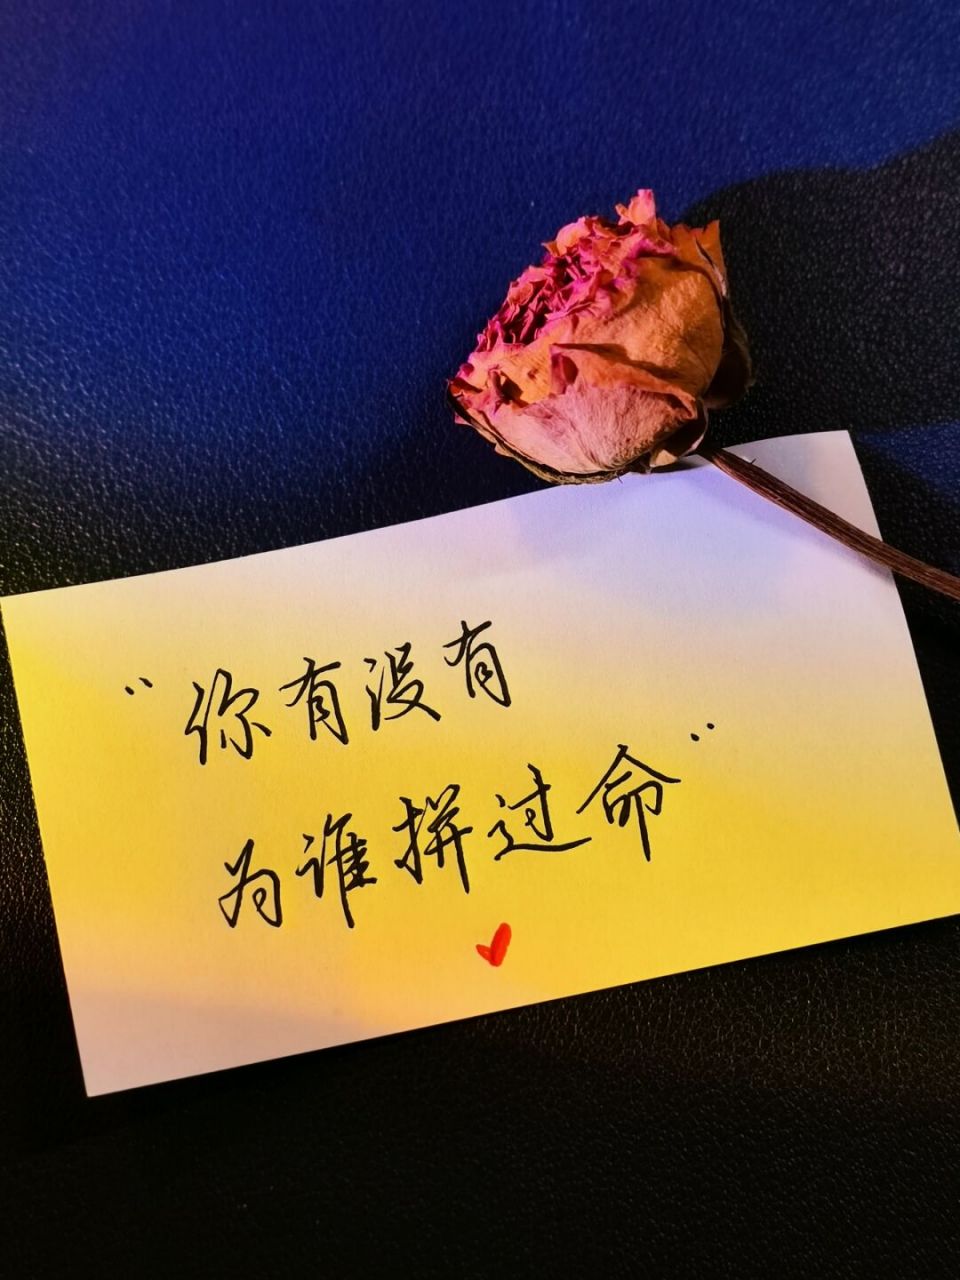 “你有没有
为谁拼过命”